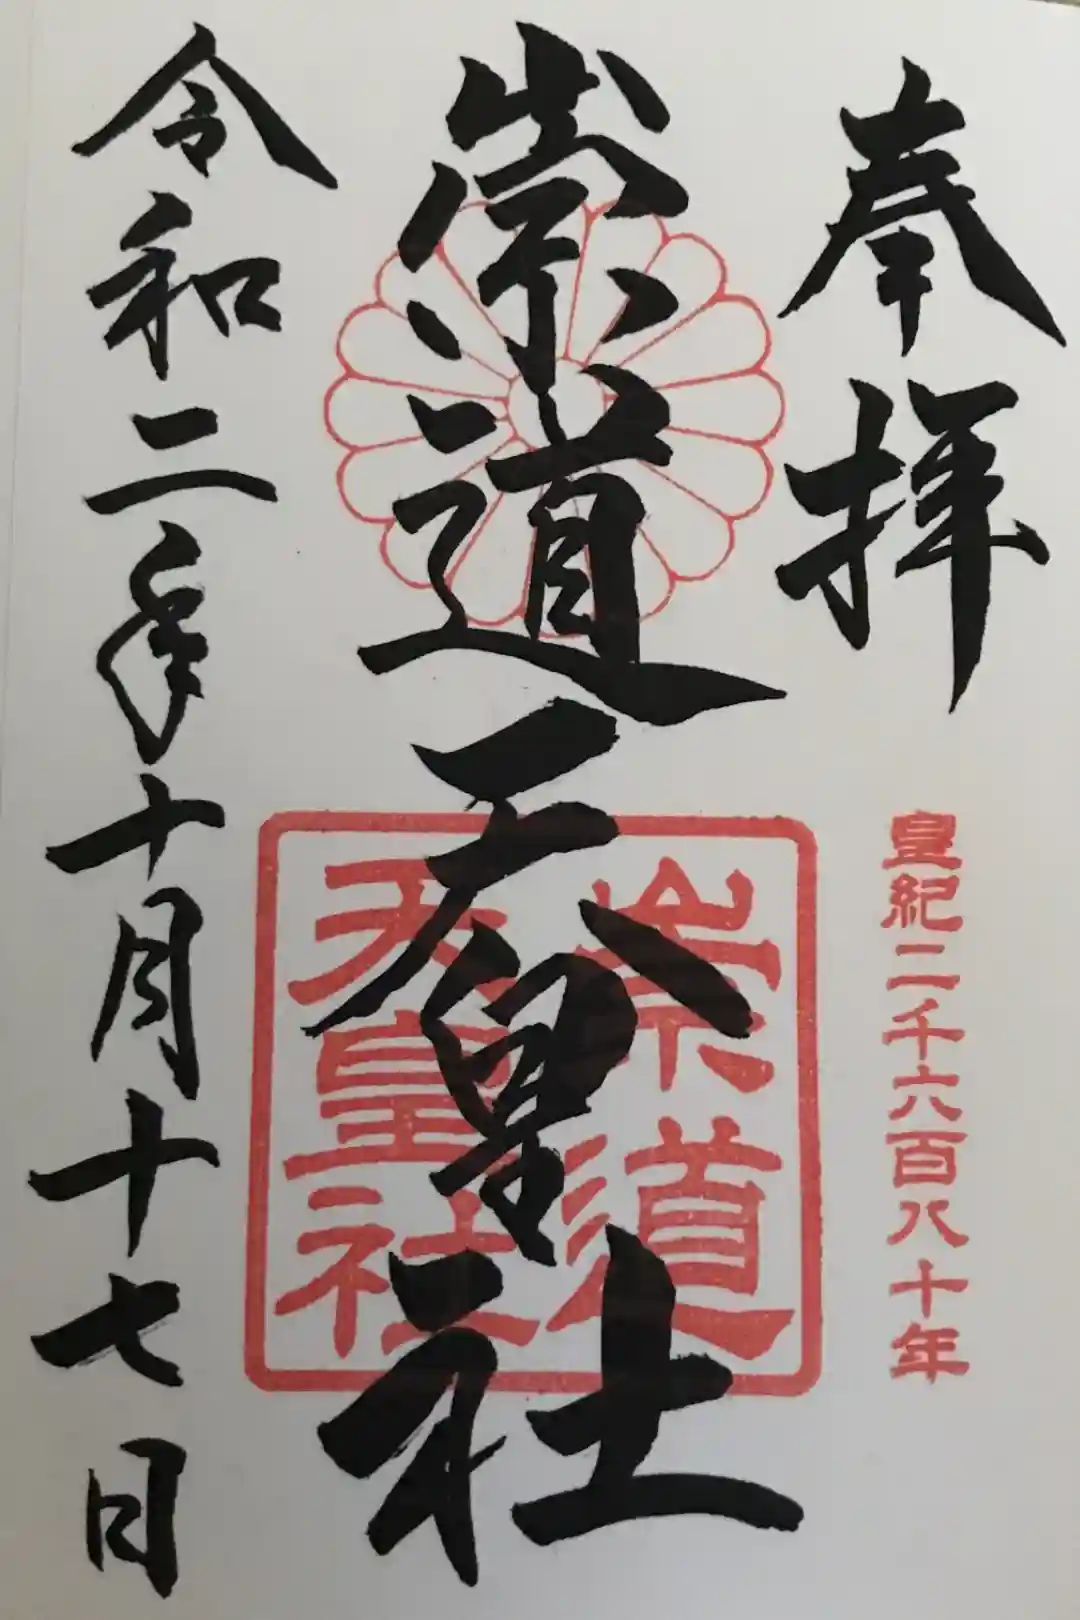 奉拝
皇紀二千六百八十年
崇道天皇社
崇道
天皇社
令和二年十月十七日